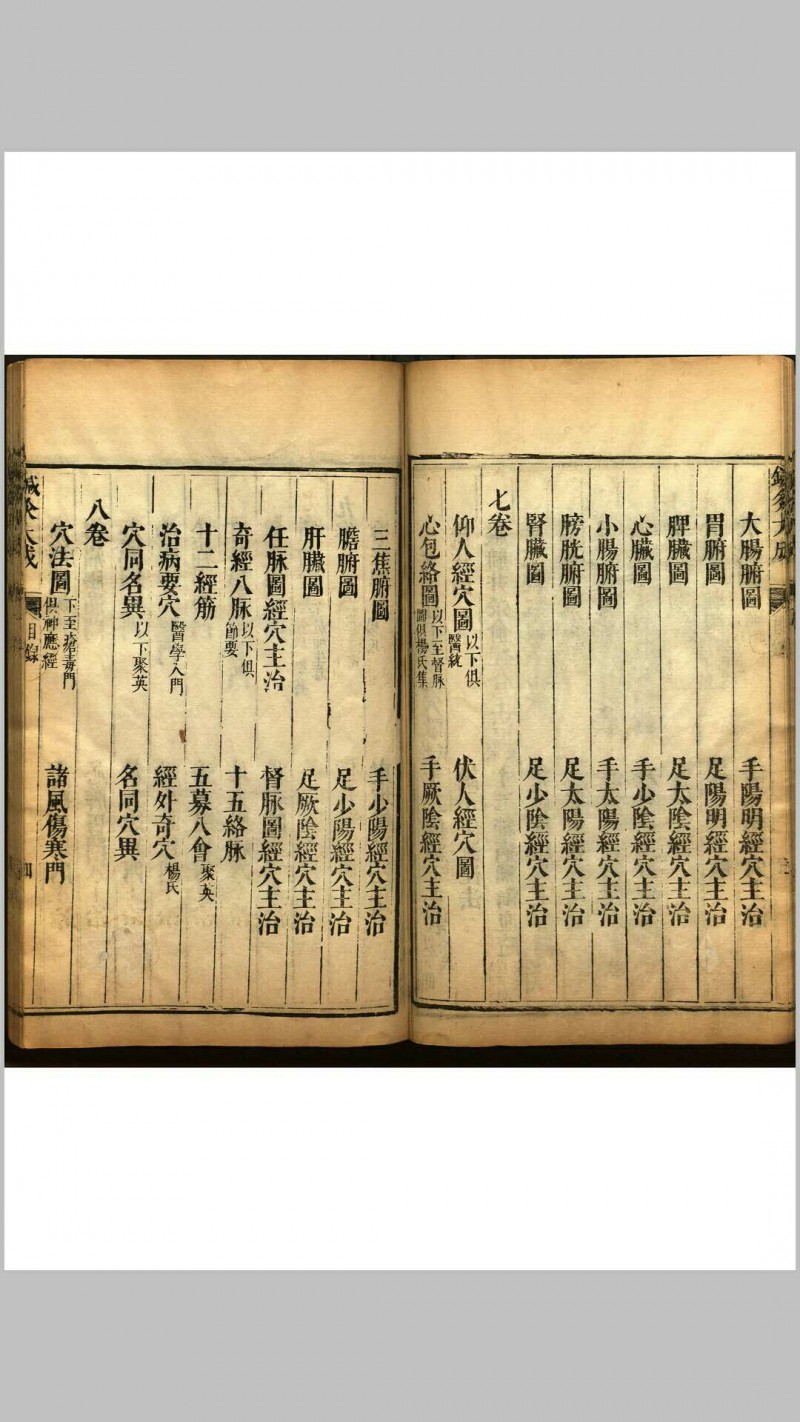 鍼灸大成
大腸腑圖　手陽明經穴主治
胃腑圖　足陽明經穴主治
脾臟圖　足太陰經穴主治
心臟圖　手少陰經穴主治
小腸腑圖　手太陽經穴主治
膀胱腑圖　足太陽經穴主治
腎臟圖　足少陰經穴主治
七卷
仰人經穴圖 以下俱醫統　伏人經穴圖
心包絡圖 以下至督脉圖俱楊氏集　手厥陰經穴主治
三焦腑圖　手少陽經穴主治
膽腑圖　足少陽經穴主治
肝臟圖　足厥陰經穴主治
任脉圖經穴主治　督脉圖經穴主治
奇經八脉 以下俱節要　十五絡脉
十二經筋　五募八會 聚英
治病要穴 醫學入門　經外奇穴 楊氏
穴同名異 以下聚英　名同穴異
八卷
穴法圖 下至瘡毒門俱神應經　諸風傷寒門
鍼灸大成　目錄　四